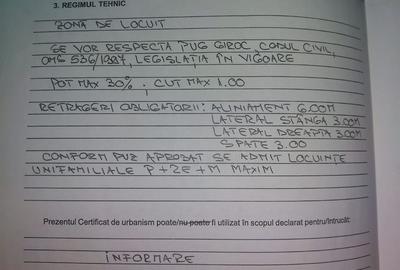 3. REGIMUL TEHNIC
ZONĂ DE LOCUIT
SE VOR RESPECTA PUG GIROC, CODUL CIVIL,
OMS 536/1997, LEGISLAȚIA ÎN VIGOARE
POT MAX 30% ; CUT MAX 1.00
RETRAGERI OBLIGATORII: ALINIAMENT 6.00M
LATERAL STÂNGA 3.00M
LATERAL DREAPTA 3.00M
SPATE 3.00
CONFORM PUZ APROBAT SE ADMIT LOCUINȚE
UNIFAMILIALE P+2E+M MAXIM
Prezentul Certificat de urbanism poate/nu poate fi utilizat în scopul declarat pentru/întrucât:
INFORMARE